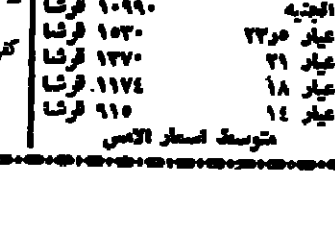 الجنيه ١٠٩٩٠ قرشا
عيار ٢٣٫٥ ١٥٣٠ قرشا
عيار ٢١ ١٣٧٠ قرشا
عيار ١٨ ١١٧٤ قرشا
عيار ١٤ ٩١٥ قرشا
متوسط اسعار الامس